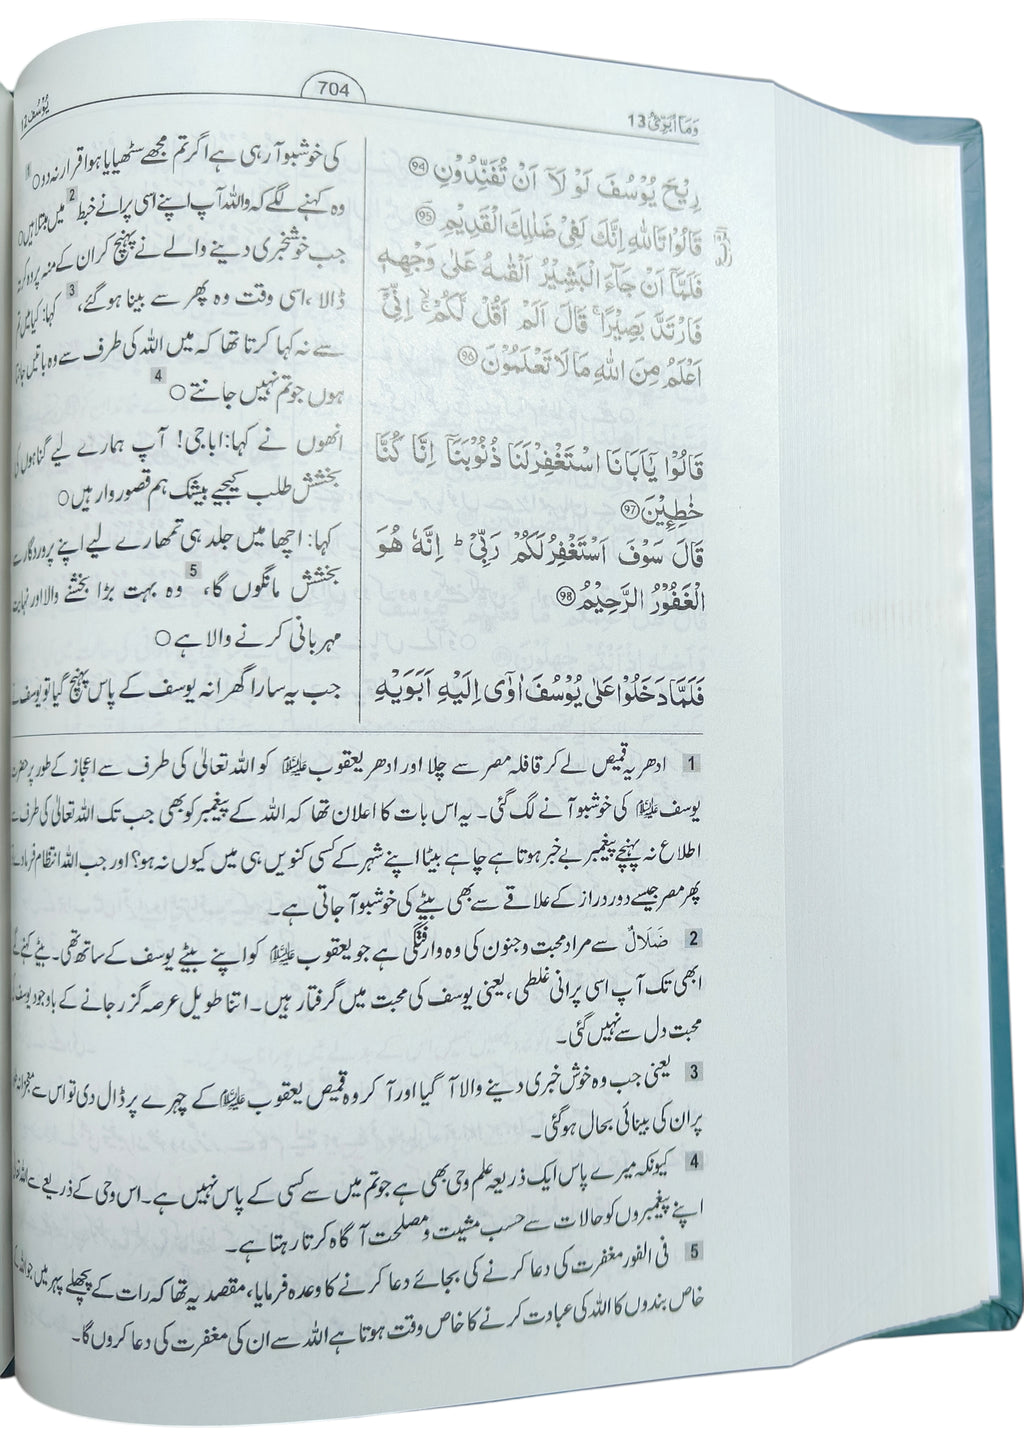 وَمَآ اُبَرِّئُ 13
704
يُوْسُف 12
رِيْحَ يُوْسُفَ لَوْ لَآ اَنْ تُفَنِّدُوْنِ ﴿94﴾
قَالُوْا تَاللّٰهِ اِنَّكَ لَفِيْ ضَلٰلِكَ الْقَدِيْمِ ﴿95﴾
فَلَمَّآ اَنْ جَآءَ الْبَشِيْرُ اَلْقٰىهُ عَلٰى وَجْهِهٖ
فَارْتَدَّ بَصِيْرًا ۚ قَالَ اَلَمْ اَقُلْ لَّكُمْ ۙ اِنِّيْٓ
اَعْلَمُ مِنَ اللّٰهِ مَا لَا تَعْلَمُوْنَ ﴿96﴾
قَالُوْا يٰٓاَبَانَا اسْتَغْفِرْ لَنَا ذُنُوْبَنَآ اِنَّا كُنَّا
خٰطِـِٕيْنَ ﴿97﴾
قَالَ سَوْفَ اَسْتَغْفِرُ لَكُمْ رَبِّيْ ؕ اِنَّهٗ هُوَ
الْغَفُوْرُ الرَّحِيْمُ ﴿98﴾
فَلَمَّا دَخَلُوْا عَلٰى يُوْسُفَ اٰوٰٓى اِلَيْهِ اَبَوَيْهِ
کی خوشبو آ رہی ہے اگر تم مجھے سٹھیایا ہوا قرار نہ دو○ 1
وہ کہنے لگے کہ واللہ آپ اپنے اسی پرانے خبط 2 میں مبتلا ہیں○
جب خوشخبری دینے والے نے پہنچ کر ان کے منہ پر وہ کرتہ
ڈالا، اسی وقت وہ پھر سے بینا ہو گئے، 3 کہا: کیا میں تم
سے نہ کہا کرتا تھا کہ میں اللہ کی طرف سے وہ باتیں جانتا
ہوں جو تم نہیں جانتے 4 ○
انھوں نے کہا: ابا جی! آپ ہمارے لیے گناہوں کی
بخشش طلب کیجیے بیشک ہم قصوروار ہیں○
کہا: اچھا میں جلد ہی تمھارے لیے اپنے پروردگار سے
بخشش مانگوں گا، 5 وہ بہت بڑا بخشنے والا اور نہایت
مہربانی کرنے والا ہے○
جب یہ سارا گھرانہ یوسف کے پاس پہنچ گیا تو یوسف نے
1 ادھر یہ قمیص لے کر قافلہ مصر سے چلا اور ادھر یعقوب علیہ السلام کو اللہ تعالیٰ کی طرف سے اعجاز کے طور پر حضرت
یوسف علیہ السلام کی خوشبو آنے لگ گئی۔ یہ اس بات کا اعلان تھا کہ اللہ کے پیغمبر کو بھی جب تک اللہ تعالیٰ کی طرف سے
اطلاع نہ پہنچے پیغمبر بے خبر ہوتا ہے چاہے بیٹا اپنے شہر کے کسی کنویں ہی میں کیوں نہ ہو؟ اور جب اللہ انتظام فرما دے
پھر مصر جیسے دور دراز کے علاقے سے بھی بیٹے کی خوشبو آ جاتی ہے۔
2 ضَلَالٌ سے مراد محبت و جنون کی وہ وارفتگی ہے جو یعقوب علیہ السلام کو اپنے بیٹے یوسف کے ساتھ تھی۔ بیٹے کہنے لگے
ابھی تک آپ اسی پرانی غلطی، یعنی یوسف کی محبت میں گرفتار ہیں۔ اتنا طویل عرصہ گزر جانے کے باوجود یوسف کی
محبت دل سے نہیں گئی۔
3 یعنی جب وہ خوش خبری دینے والا آ گیا اور آ کر وہ قمیص یعقوب علیہ السلام کے چہرے پر ڈال دی تو اس سے معجزانہ
پر ان کی بینائی بحال ہوگئی۔
4 کیونکہ میرے پاس ایک ذریعہ علم وحی بھی ہے جو تم میں سے کسی کے پاس نہیں ہے۔ اس وحی کے ذریعے سے اللہ
اپنے پیغمبروں کو حالات سے حسب مشیت و مصلحت آگاہ کرتا رہتا ہے۔
5 فی الفور مغفرت کی دعا کرنے کی بجائے دعا کرنے کا وعدہ فرمایا، مقصد یہ تھا کہ رات کے پچھلے پہر میں جو اللہ کے
خاص بندوں کا اللہ کی عبادت کرنے کا خاص وقت ہوتا ہے اللہ سے ان کی مغفرت کی دعا کروں گا۔